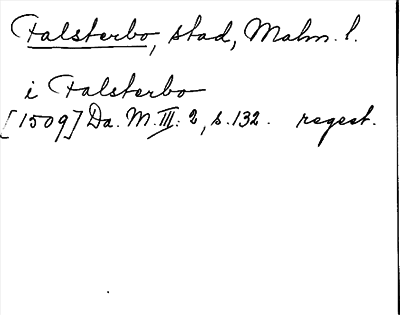 Falsterbo, stad, Malm. l.
i Falsterbo
[1509] Da. M. III: 2, s. 132. regest.